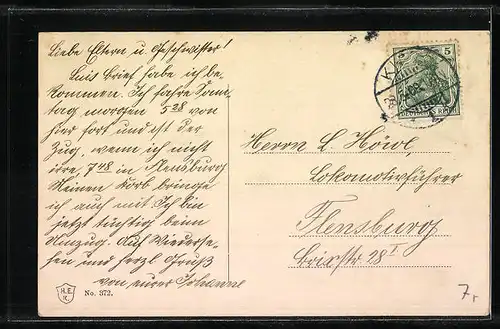 Liebe Eltern u. Geschwister!
Euis Brief habe ich be-
kommen. Ich fahre Sonn-
tag morgen 5 28 von
hier fort und ist der
Zug, wenn ich nicht
irre, 7 48 in Flensburg
Meinen Korb bringe
ich auch mit. Ich bin
jetzt tüchtig beim
Umzug. Auf Wiederse-
hen und herzl. Gruß
von eurer Johanne
Herrn L.
Lokomotivführer
Flensburg
28 I
5
KI
H.E.
K.
No. 372.
7,